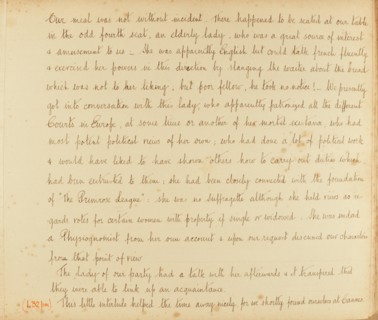 Our meal was not without incident. There happened to be seated at our table
in the odd fourth seat, an elderly lady, who was a great source of interest
& amusement to us. She was apparently English but could talk french fluently
& exercised her powers in this direction by slanging the waiter about the bread
which was not to her liking, but poor fellow, he took no notice! We presently
got into conversation with this lady, who apparently patronized all the different
Courts in Europe, at some time or another of her mortal existence, who had
most potent political views of her own, who had done a lot of political work
& would have liked to have shown others how to carry out duties which
had been entrusted to them; she had been closely connected with the foundation
of "the Primrose league". She was no suffragette although she held views as re-
gards votes for certain women with property if single or widowed. She was indeed
a Physiognomist from her own account & upon our request discerned our characters
from that point of view
The Lady of our party, had a talk with her afterwards & it transpired that
they were able to link up an acquaintance.
This little interlude helped the time away nicely, for we shortly found ourselves at